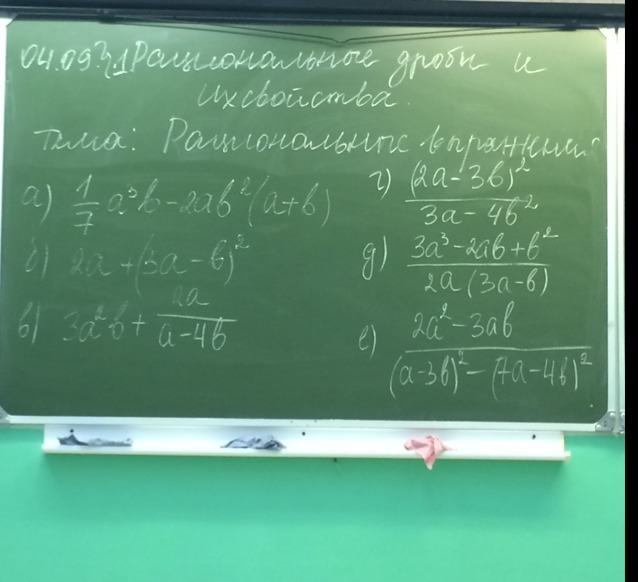 04.09 §1 Рациональные дроби и
их свойства.
тема: Рациональные выражения
а) 1/7 a³b - 2ab²(a+b)
б) 2a + (3a - b)²
в) 3a²b + 2a/(a - 4b)
г) (2a - 3b)²/(3a - 4b²)
д) (3a³ - 2ab + b²)/(2a(3a - b))
е) (2a² - 3ab)/((a - 3b)² - (7a - 4b)²)